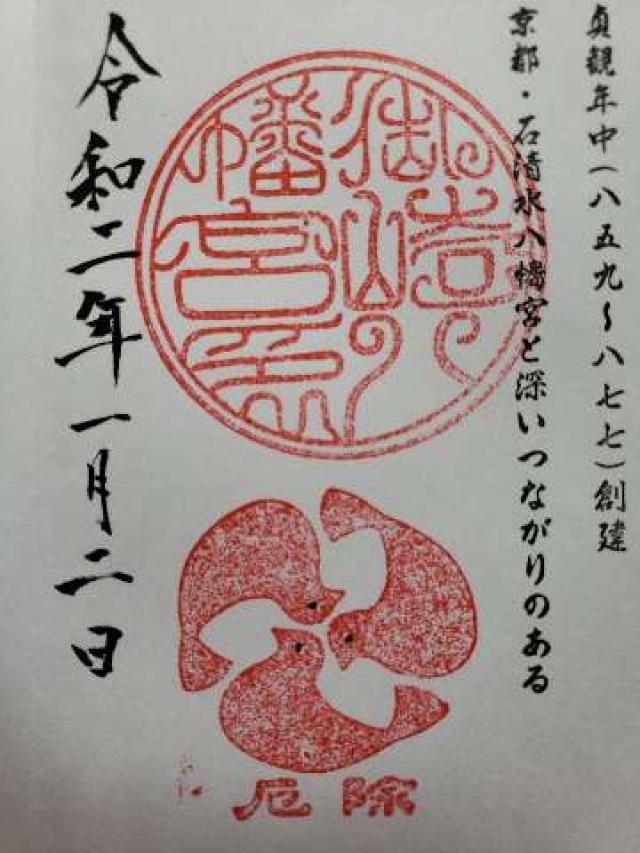 貞観年中(八五九～八七七)創建
京都・石清水八幡宮と深いつながりのある
御崎八
幡宮
令和二年一月二日
厄除